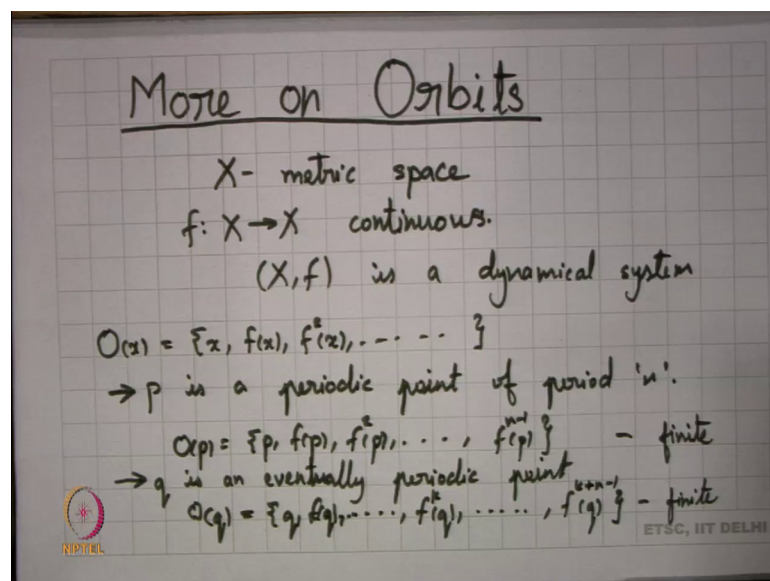 More on Orbits
X- metric space
f: X → X continuous.
(X, f) is a dynamical system
O(x) = {x, f(x), f²(x), ------ }
→ p is a periodic point of period 'n'.
O(p) = {p, f(p), f²(p), ...., fⁿ⁻¹(p)} - finite
→ q is an eventually periodic point
O(q) = {q, f(q), ....., fᵏ(q), ....., fᵏ⁺ⁿ⁻¹(q)} - finite
NPTEL
ETSC, IIT DELHI